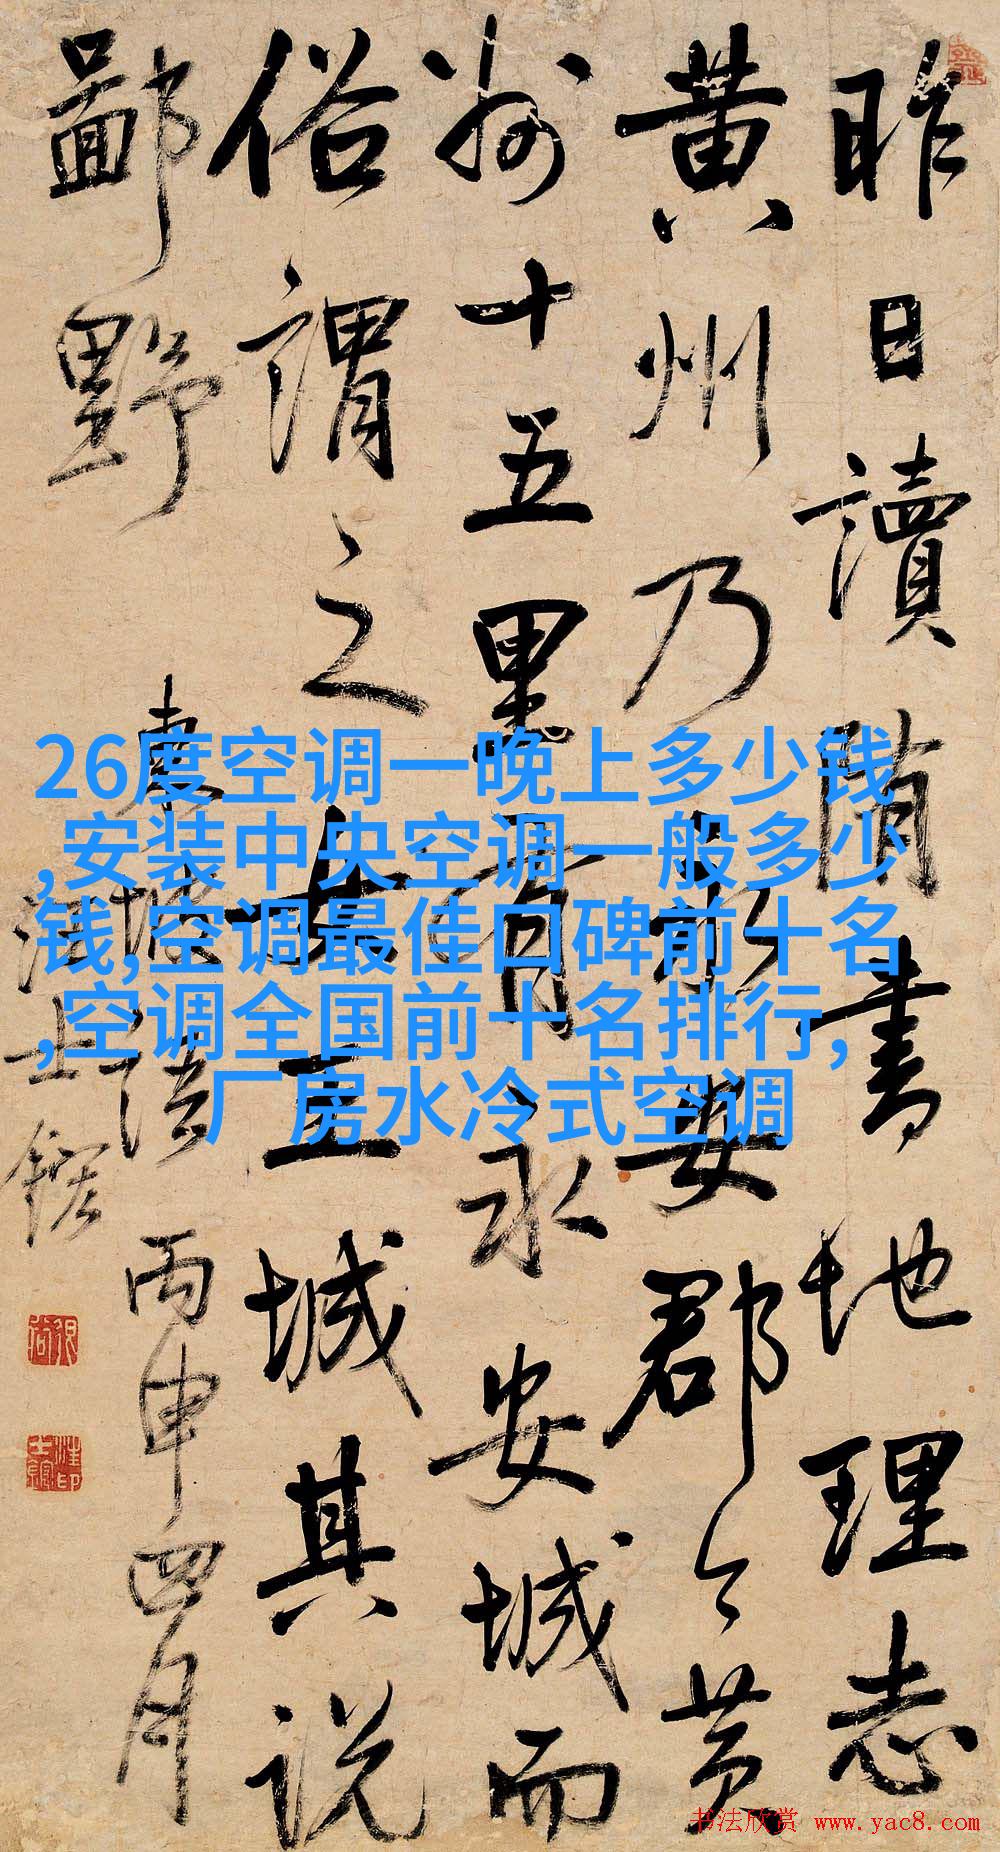 昨日讀隋書地理志
黄州乃永安郡今黄
州十五里有永安城而
俗謂之女王城其説
鄙野
東坡語 丙申四月
汪士鋐
26度空调一晚上多少钱
,安装中央空调一般多少
钱,空调最佳口碑前十名
,空调全国前十名排行,
厂房水冷式空调
书法欣赏 www.yac8.com